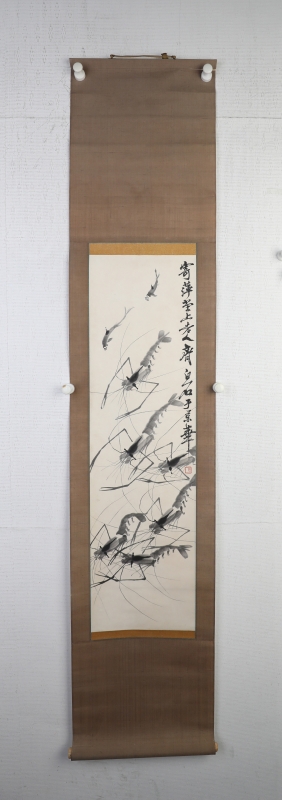 寄萍堂上老人齊白石于京華